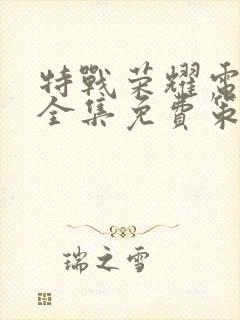 特戰荣耀電
全集免費策
瑞之雪